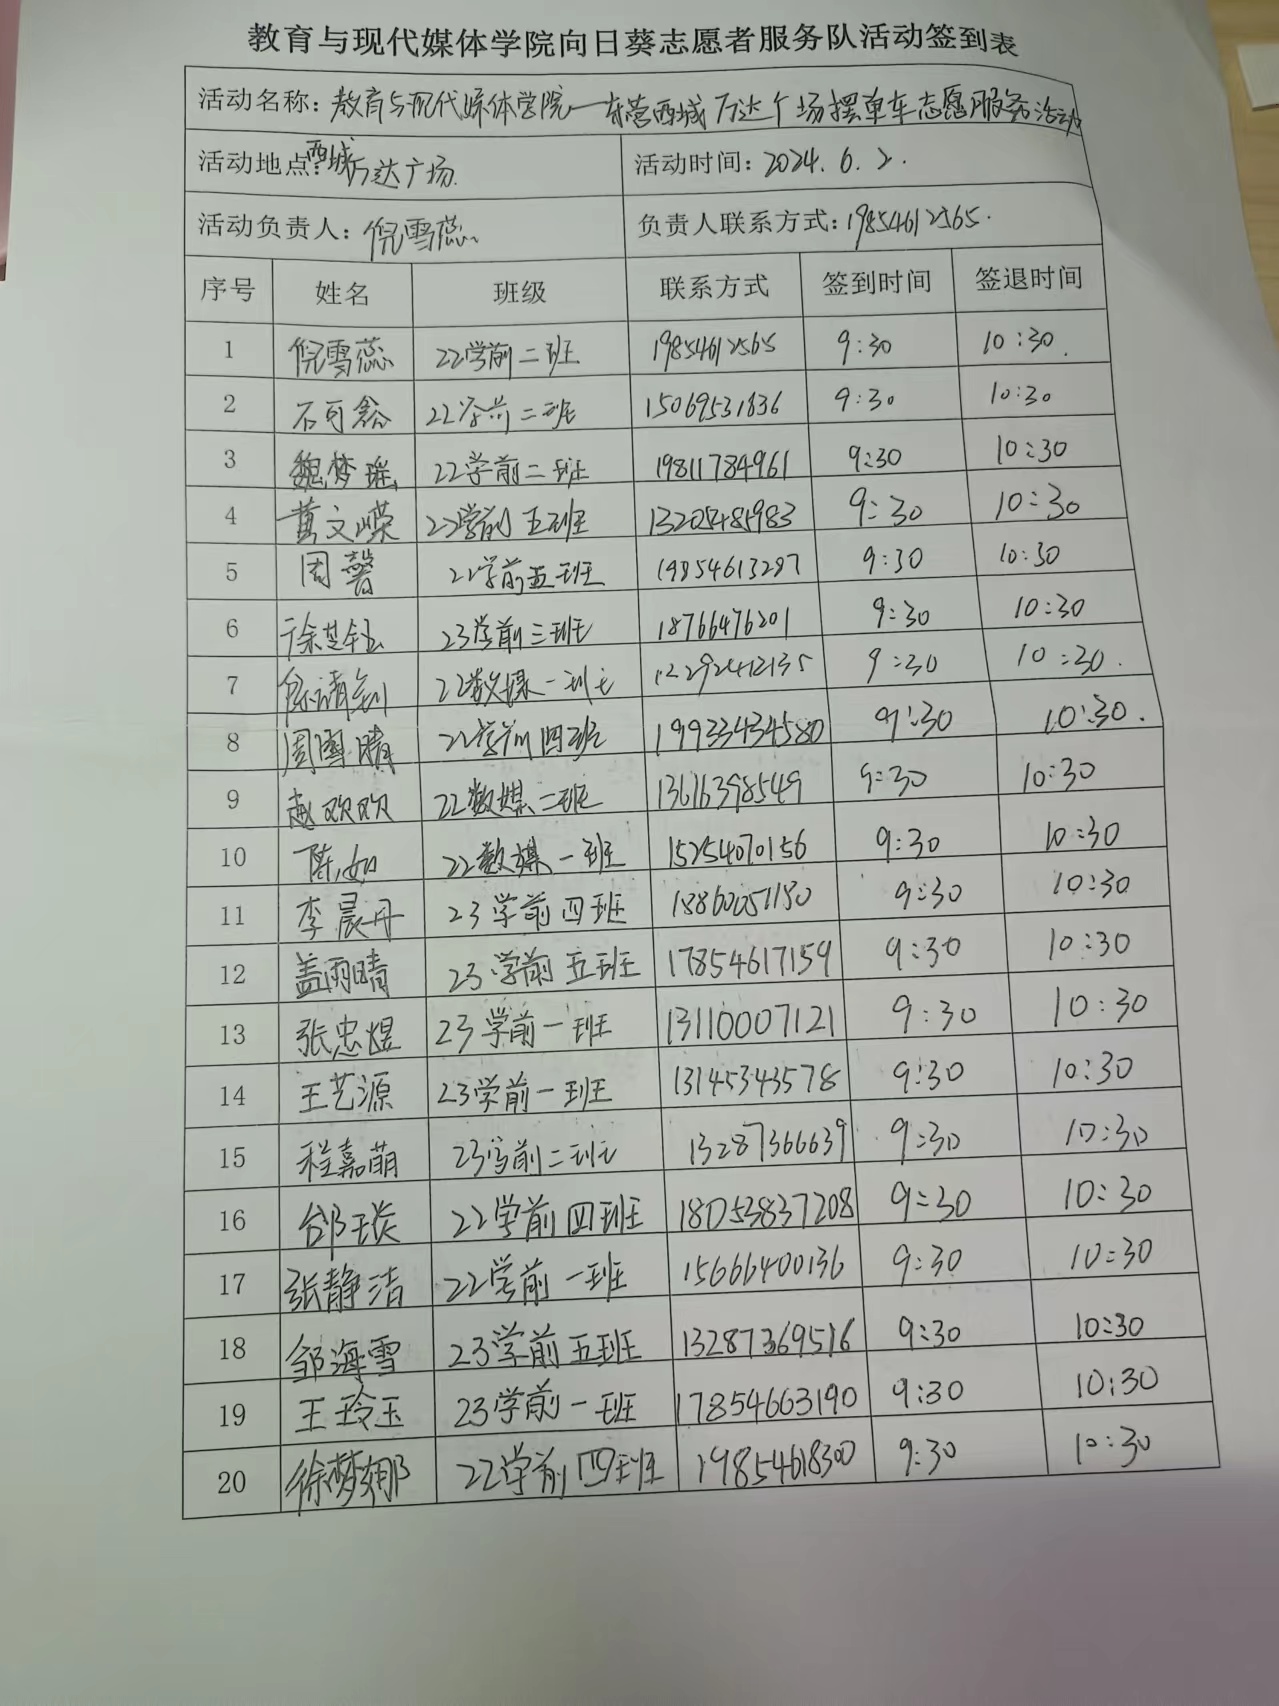 教育与现代媒体学院向日葵志愿者服务队活动签到表
活动名称：教育与现代媒体学院—东营西城万达广场摆单车志愿服务活动
活动地点：西城万达广场 活动时间：2024.6.2.
活动负责人：倪雪蕊 负责人联系方式：19854612565.
序号 姓名 班级 联系方式 签到时间 签退时间
1 倪雪蕊 22学前二班 19854612565 9:30 10:30.
2 石可鑫 22学前二班 15069531836 9:30 10:30
3 魏梦瑶 22学前二班 19811784961 9:30 10:30
4 黄文嵘 22学前五班 9:30 10:30
5 周馨 22学前五班 19854613287 9:30 10:30
6 23学前三班 18766476201 9:30 10:30
7 22数媒一班 9:30 10:30.
8 周雪晴 22学前四班 19933434580 9:30 10:30.
9 赵欢欢 22数媒二班 13616398549 9:30 10:30
10 陈如 22数媒一班 15254070156 9:30 10:30
11 李晨丹 23学前四班 18860051180 9:30 10:30
12 盖雨晴 23学前五班 17854617159 9:30 10:30
13 张忠煜 23学前一班 13110007121 9:30 10:30
14 王艺源 23学前一班 13145343578 9:30 10:30
15 程嘉萌 23学前二班 13287366639 9:30 10:30
16 邰琰 22学前四班 18053837208 9:30 10:30
17 张静洁 22学前一班 15666400136 9:30 10:30
18 邹海雪 23学前五班 13287369516 9:30 10:30
19 王玲玉 23学前一班 17854663190 9:30 10:30
20 徐梦娜 22学前四班 19854618300 9:30 10:30